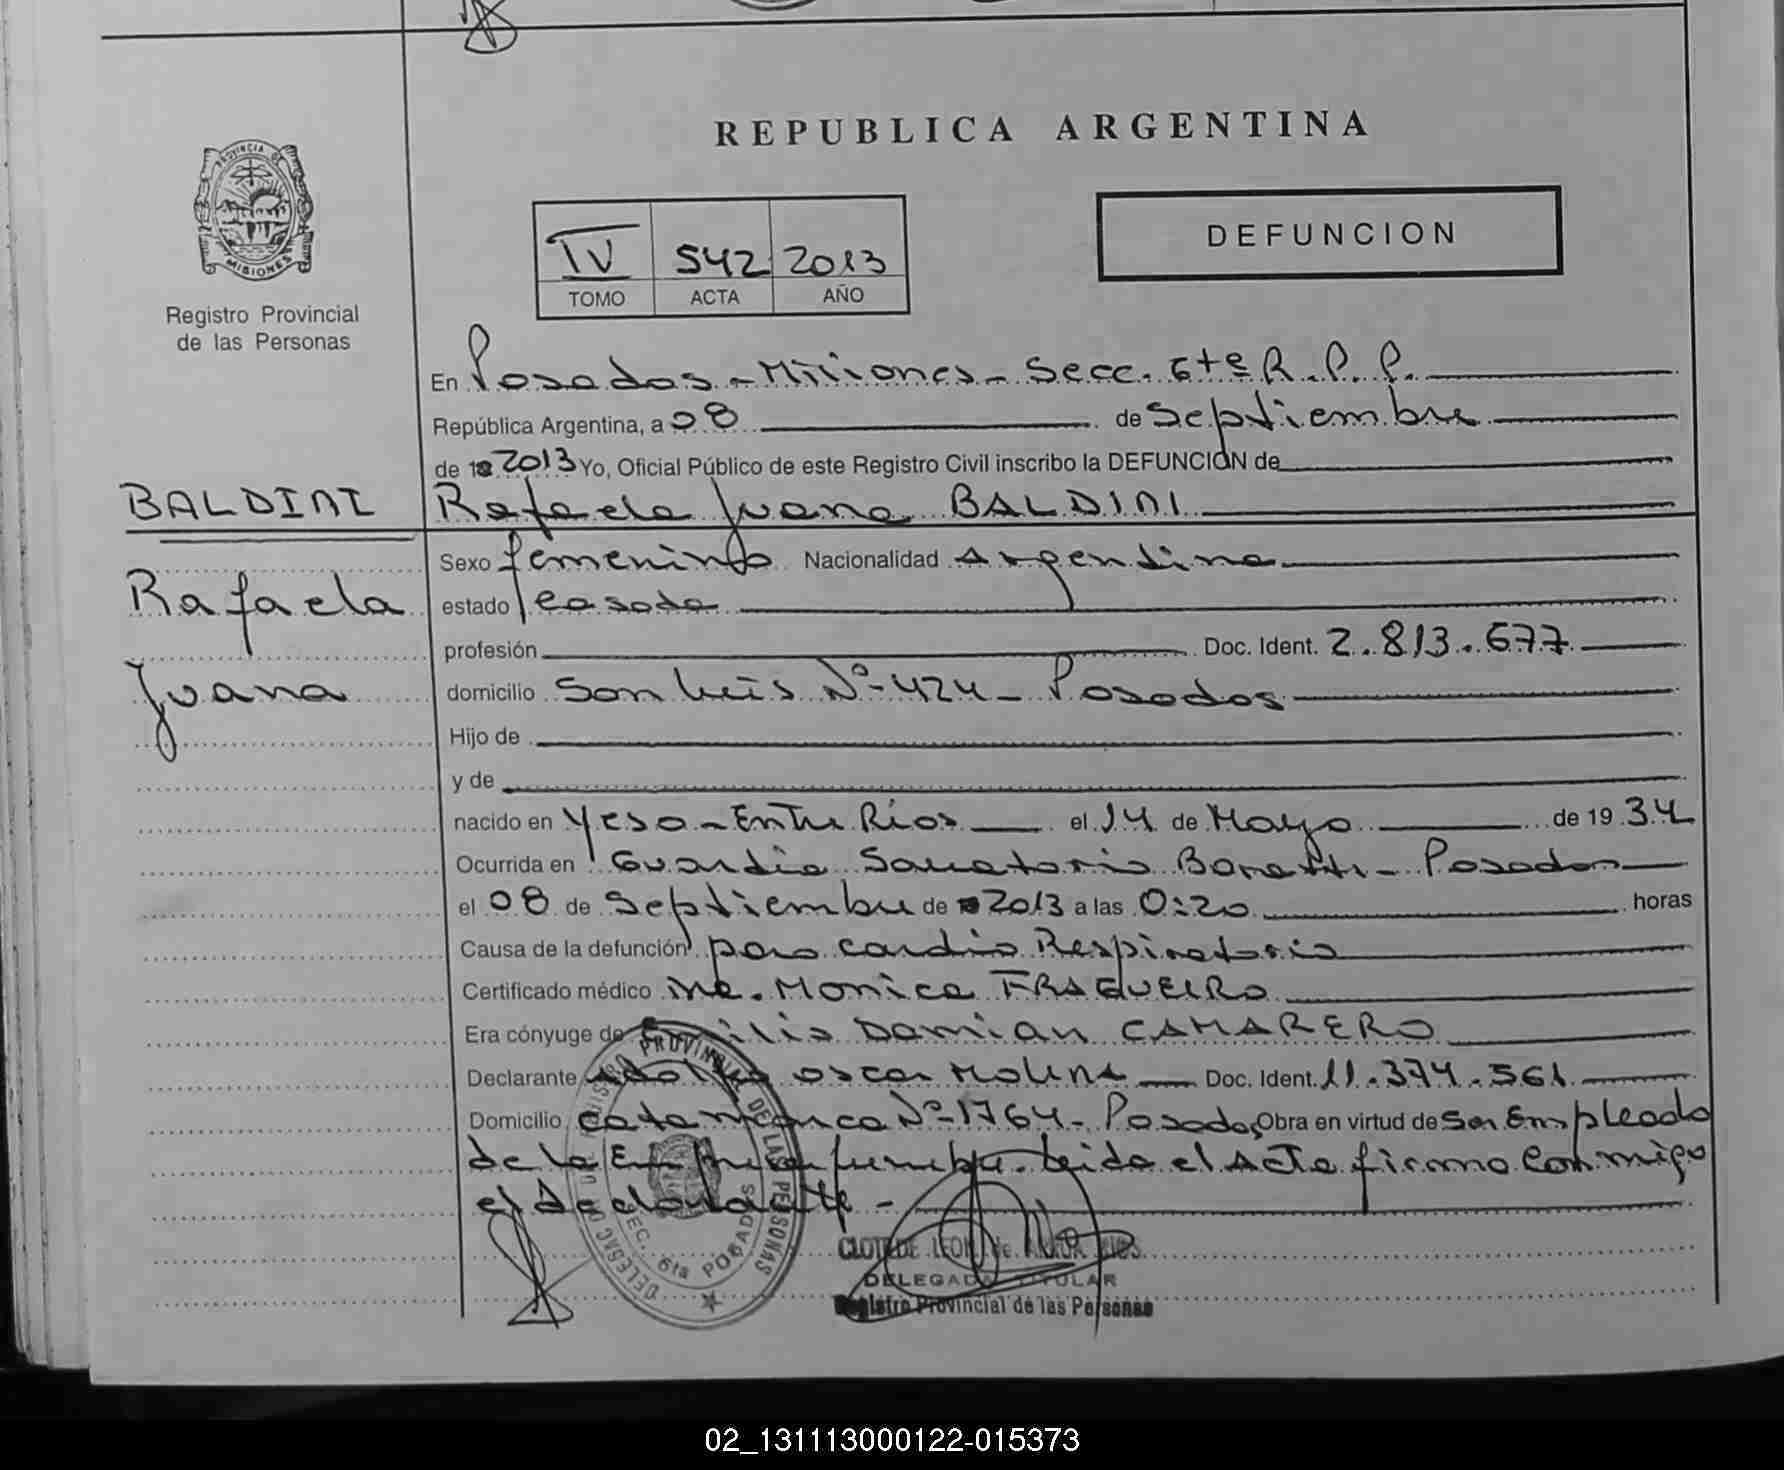 REPUBLICA ARGENTINA
PROVINCIA DE
MISIONES
Registro Provincial
de las Personas
IV 542 2013
TOMO ACTA AÑO
DEFUNCION
En Posadas - Misiones - Secc. 6ta R.P.P.
República Argentina, a 08 de Septiembre
de 2013 Yo, Oficial Público de este Registro Civil inscribo la DEFUNCION de
BALDINI
Rafaela Juana BALDINI
Rafaela
Juana
Sexo femenino Nacionalidad Argentina
estado casada
profesión Doc. Ident. 2.813.677
domicilio San Luis Nº 424 - Posadas
Hijo de
y de
nacido en Yeso - Entre Ríos el 14 de Mayo de 1934
Ocurrida en Guardia Sanatorio Boratti - Posadas
el 08 de Septiembre de 2013 a las 0:20 horas
Causa de la defunción paro cardio Respiratorio
Certificado médico Monica FRAGUEIRO
Era cónyuge de Emilio Damian CAMARERO
Declarante Adolfo oscar Molina Doc. Ident. 11.374.561
Domicilio Catamarca Nº 1764 - Posadas Obra en virtud de ser Empleado
de la Empresa funebre. Leida el Acta firma conmigo
el Declarante -
REGISTRO PROVINCIAL DE LAS PERSONAS
SEC. 6ta POSADAS
CLOTILDE LEON de
DELEGADA TITULAR
Registro Provincial de las Personas
02_131113000122-015373